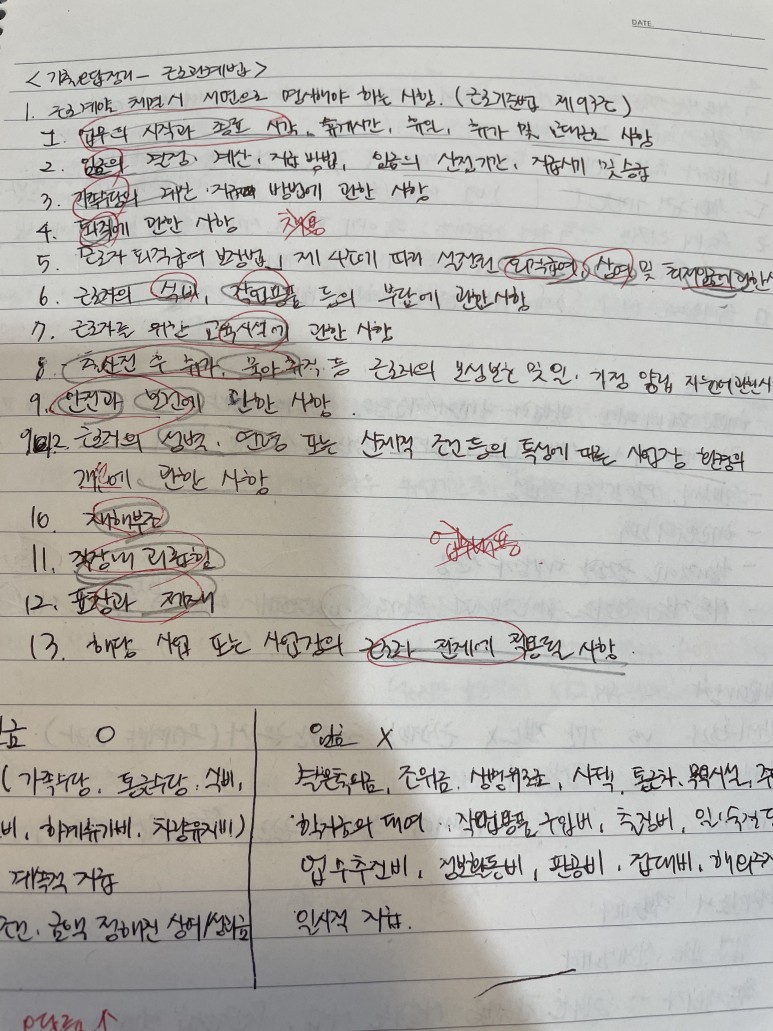 DATE.
<기출오답정리 - 근로관계법>
1. 근로계약 체결시 서면으로 명시해야 하는 사항. (근로기준법 제93조)
1. 업무의 시작과 종료 시각, 휴게시간, 휴일, 휴가 및 교대근로 사항
2. 임금의 결정, 계산, 지급 방법, 임금의 산정기간, 지급시기 및 승급
3. 가족수당의 계산·지급 방법에 관한 사항
4. 퇴직에 관한 사항
5. 근로자 퇴직급여 보장법 제4조에 따라 설정된 퇴직급여, 상여 및 최저임금에 관한 사
6. 근로자의 식비, 작업용품 등의 부담에 관한 사항
7. 근로자를 위한 교육시설에 관한 사항
8. 출산전후 휴가, 육아휴직 등 근로자의 모성보호 및 일·가정 양립 지원에 관한 사
9. 안전과 보건에 관한 사항.
9의2. 근로자의 성별, 연령 또는 신체적 조건 등의 특성에 따른 사업장 환경의
개선에 관한 사항
10. 재해부조
11. 직장내 괴롭힘
12. 표창과 제재
13. 해당 사업 또는 사업장의 근로자 전체에 적용될 사항.
임금 O
임금 X
(가족수당, 통근수당, 식비,
결혼축의금, 조위금, 상병위로금, 사택, 통근차, 목욕시설,
비, 하계휴가비, 차량유지비)
학자금의 대여, 작업용품 구입비, 출장비, 일·숙직
업무추진비, 정보활동비, 판공비, 접대비, 해외주
계속적 지급
조건, 금액 정해진 상여/성과금
일시적 지급.